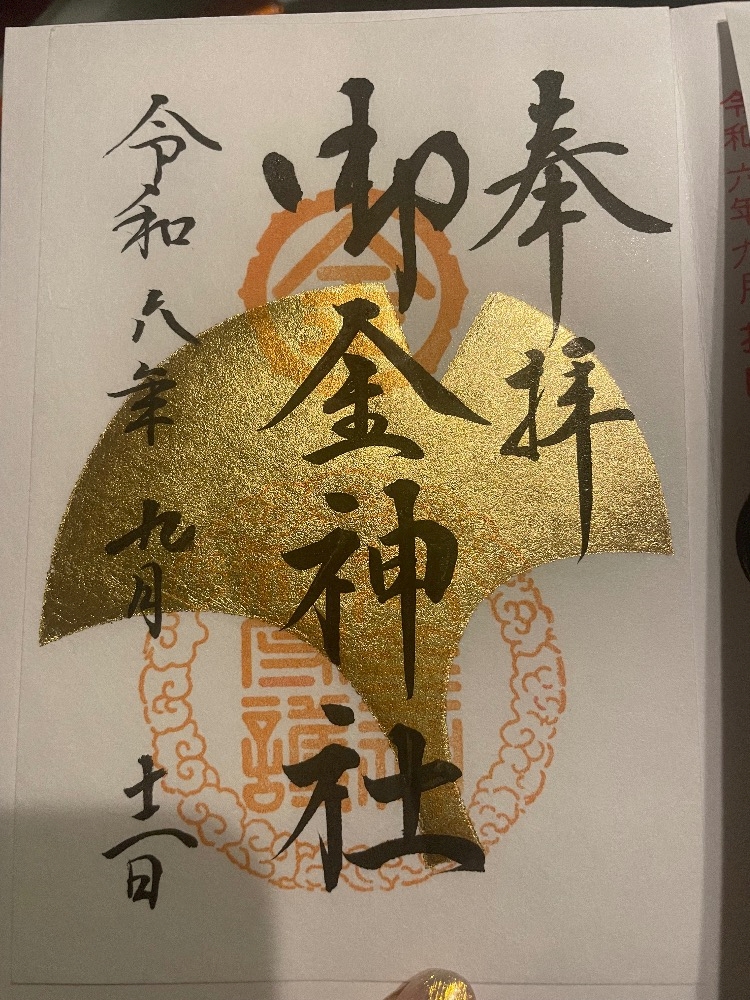 奉拝
御金神社
令和六年九月十日
令和六年九月